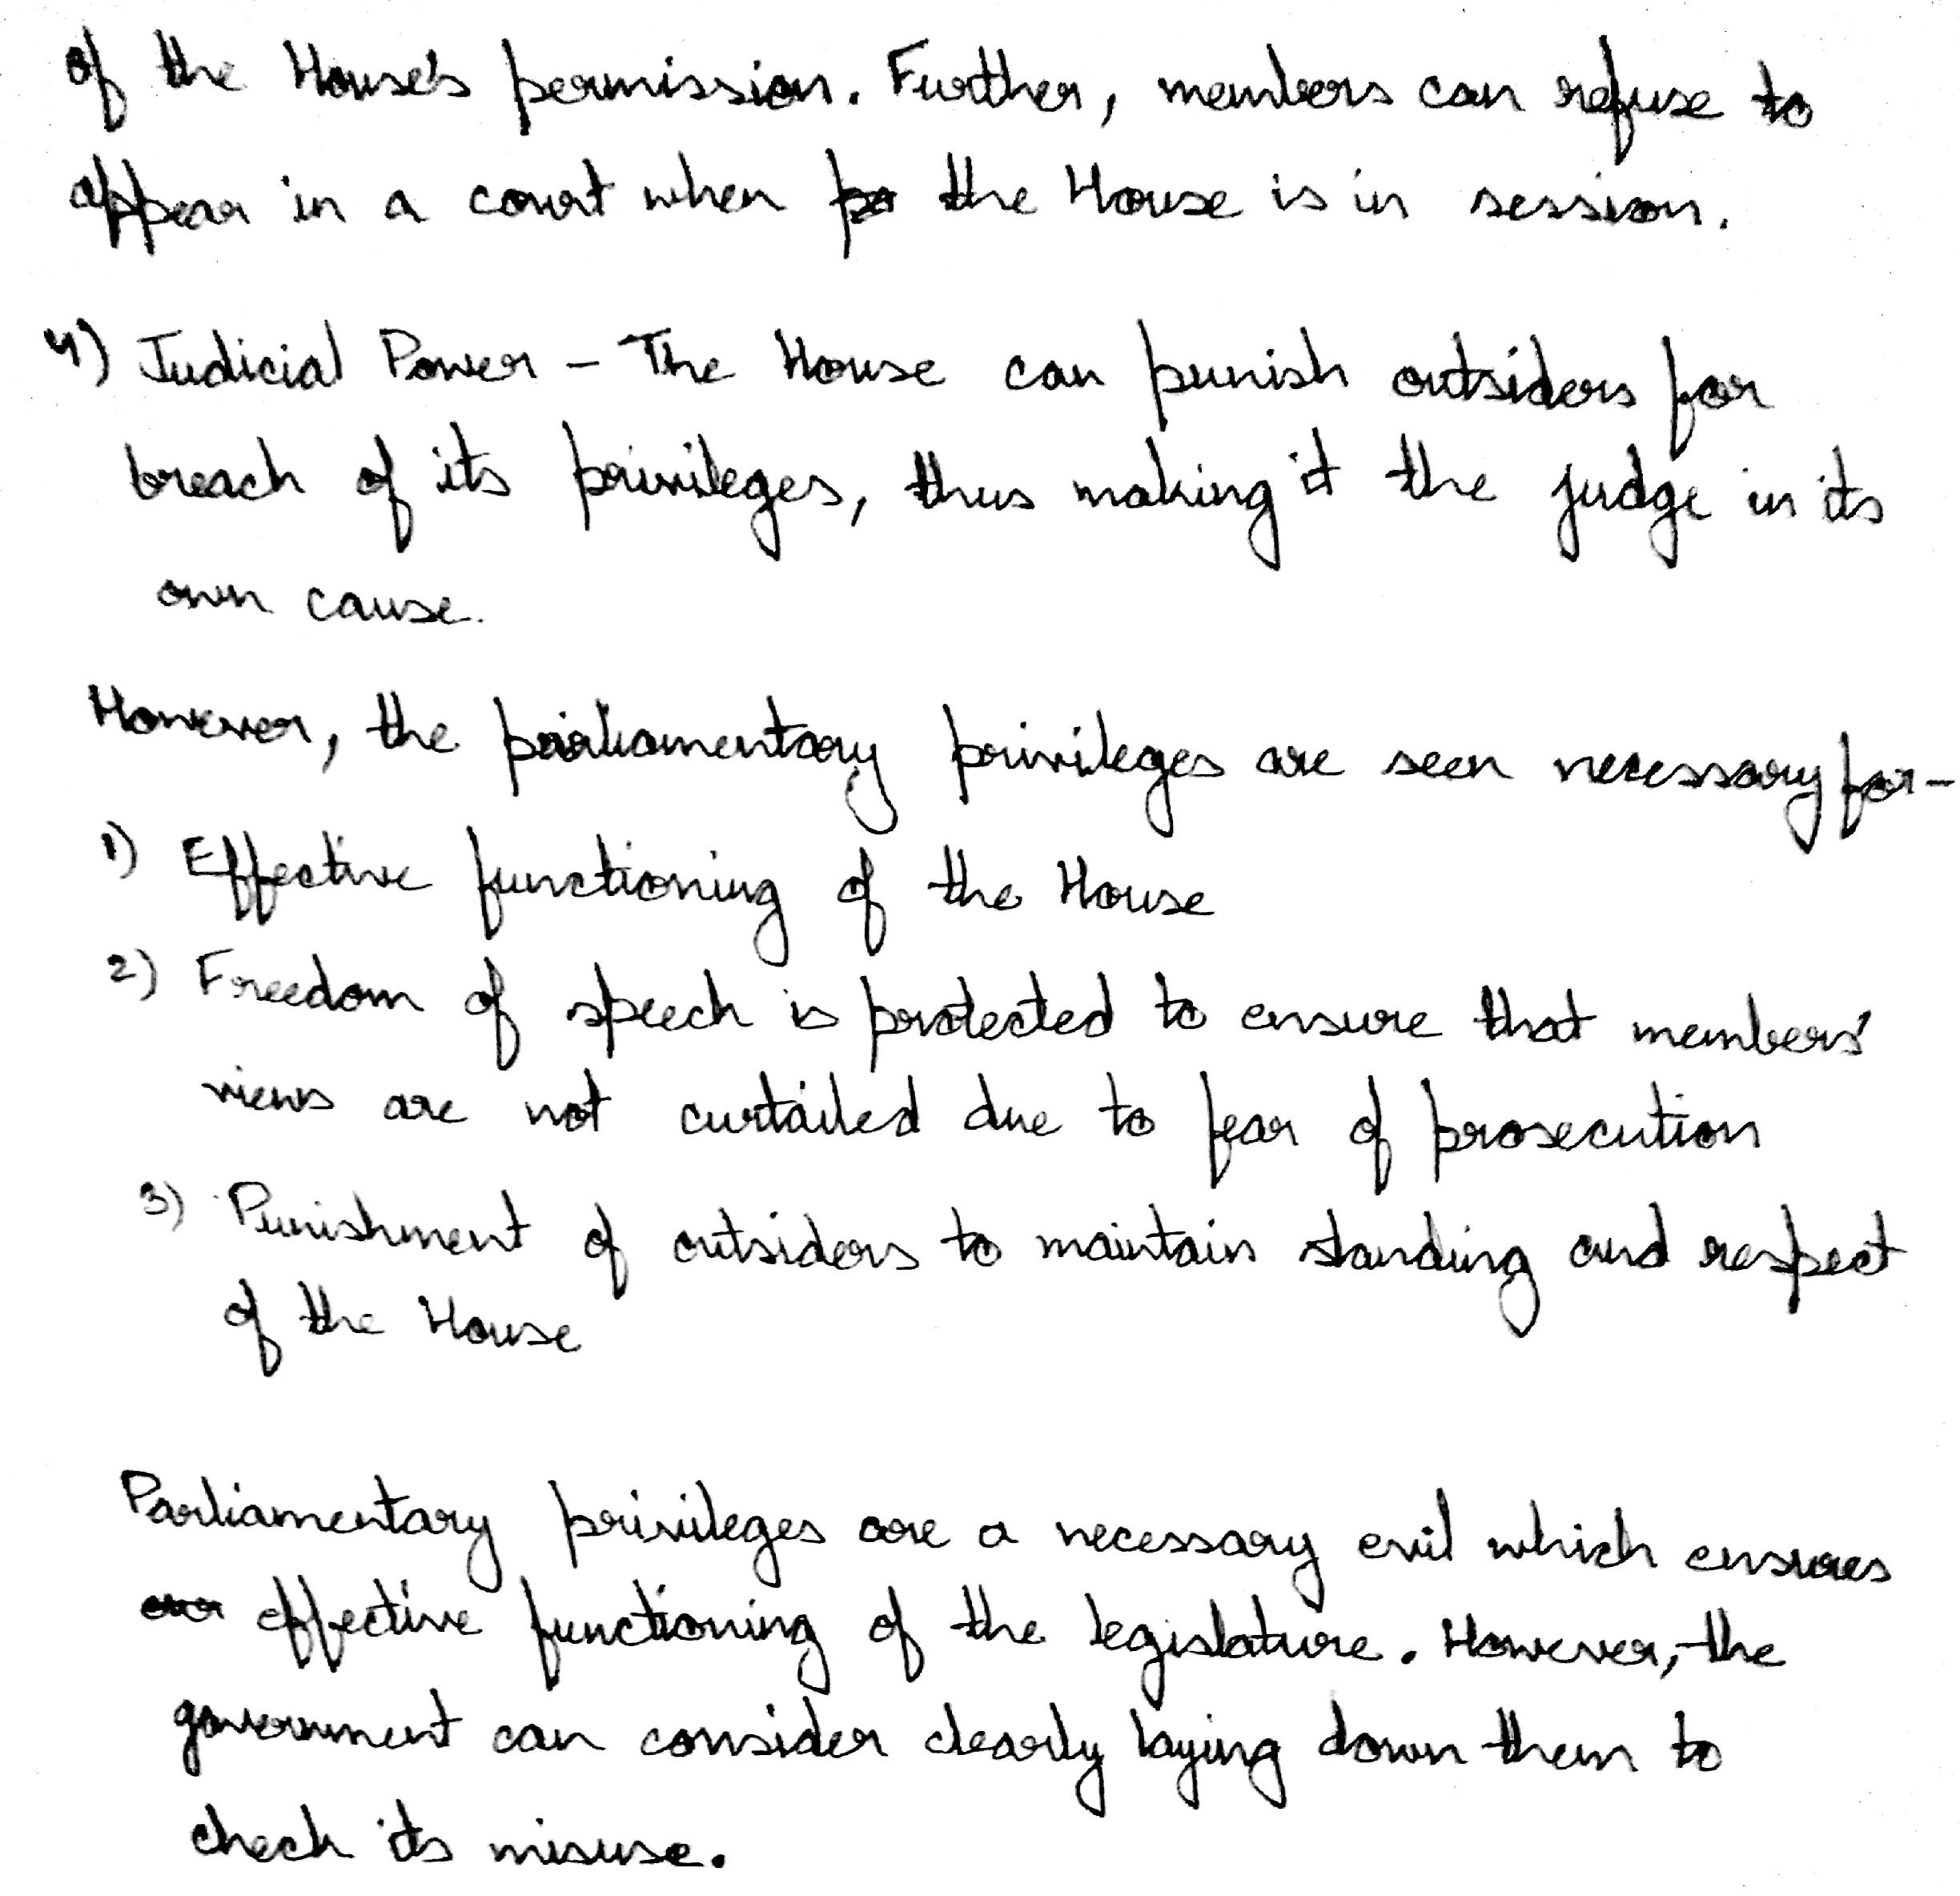 of the House's permission. Further, members can refuse to
appear in a court when the House is in session.
4) Judicial Power - The House can punish outsiders for
breach of its privileges, thus making it the judge in its
own cause.
However, the parliamentary privileges are seen necessary for-
1) Effective functioning of the House
2) Freedom of speech is protected to ensure that members'
views are not curtailed due to fear of prosecution
3) Punishment of outsiders to maintain standing and respect
of the House
Parliamentary privileges are a necessary evil which ensures
effective functioning of the legislature. However, the
government can consider clearly laying down them to
check its misuse.